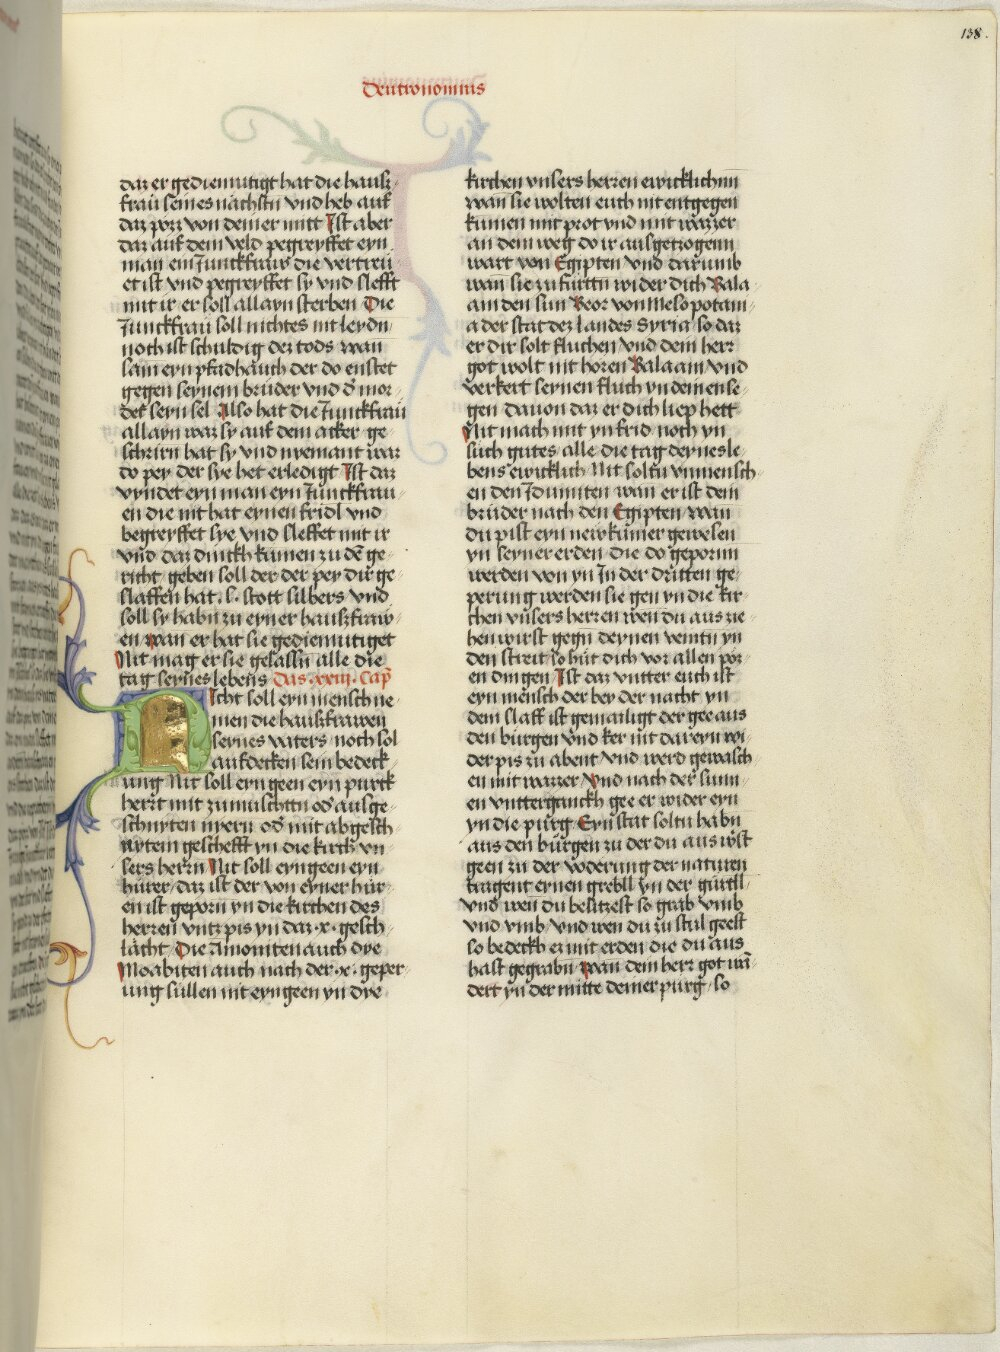 138.
Deutronomius
daz er gediemutigt hat die hausz
frau seines nächstn vnd heb auf
daz pörz von deiner mitt Ist aber
daz auf dem veld pegreyffet eyn
man ein Junckfraw die vertreu
et ist vnd pegreyffet sy vnd slefft
mit ir er soll allayn sterben Die
Junckfrau soll nichtes nit leydn
noch ist schuldig dez tods wan
sam eyn pfadhauch der do enstet
gegen seynem bruder vnd d' mor
det seyn sel Also hat die Junckfrau
allayn waz sy auf dem acker ge
schrirn hat sy vnd nyemant waz
do pey der sye het erledigt Ist daz
vyndet eyn man eyn Junckfrau
en die nit hat eynen fridl vnd
begreyffet sye vnd sleffet mit ir
vnd daz dinckh kumen zu dē ge
richt geben soll der der pey dir ge
slaffen hat .l. stott silbers vnd
soll sy habn zu eyner hauszfraw
en wan er hat sie gediemutiget
Nit mag er sie gelassn alle die
tag seynes lebens Das .xxiii. Cap
Icht soll eyn mensch ne
men die hauszfrawen
seynes vaters noch sol
aufdecken sein bedeck
ung Nit soll eyn geen eyn purck
herzt mit zumuschttn od' ausge
schnyten nyern od' mit abgesch
nytem gescheft yn die kirch vn
sers herrn Nit soll eyngeen eyn
hurer daz ist der von eyner hur
en ist geporn yn die kirchen des
herren vntz pis yn daz .x. gesch
lächt Die Amoniten auch dye
Moabiten auch nach der .x. geper
ung sullen nit eyngeen yn dye
kirchen vnsers herren ewicklichnn
wan sie wolten euch nit entgegen
kumen mit prot vnd mit wazzer
an dem weg do ir ausgetzogenn
wart von Egipten vnd darumb
wan sie zu furttn wider dich Bala
am den sun Beor von Mesopotam
a der stat dez landes Syria so daz
er dir solt fluchen vnd dem herr
got wolt nit hören Balaam vnd
verkert seynen fluch yn deinen se
gen dauon daz er dich liep hett
Nit mach mit yn frid noch yn
such gutes alle die tag deynes le
bens ewicklich Nit soltu vnmensch
en den Idumiten wan er ist dein
bruder nach den Egipten wan
du pist eyn newkumer gewesen
yn seyner erden die do gepornn
werden von yn In der dritten ge
perung werden sie gen yn die kir
chen vnsers herren wen du aus zie
hen wirst gegn deynen veintn yn
den streit so hüt dich vor allen pöz
en dingen Ist daz vntter euch ist
eyn mensch der bey der nacht yn
dem slaff ist gemailigt der gee aus
den burgen vnd ker nit dar eyn wi
der pis zu abent vnd werd gewasch
en mit wazzer vnd nach der sunn
en vntterganckh gee er wider eyn
yn die purg Eyn stat soltu habn
aus den burgen zu der du aus wirst
geen zu der voderung der naturen
tragent eynen grebll yn der gürttl
vnd wen du besitzest so grab vmb
vnd vmb vnd wen du zu stul geest
so bedeckh er mit erden die du aus
hast gegrabn wan dein herr got wā
dert yn der mitte deiner purg so